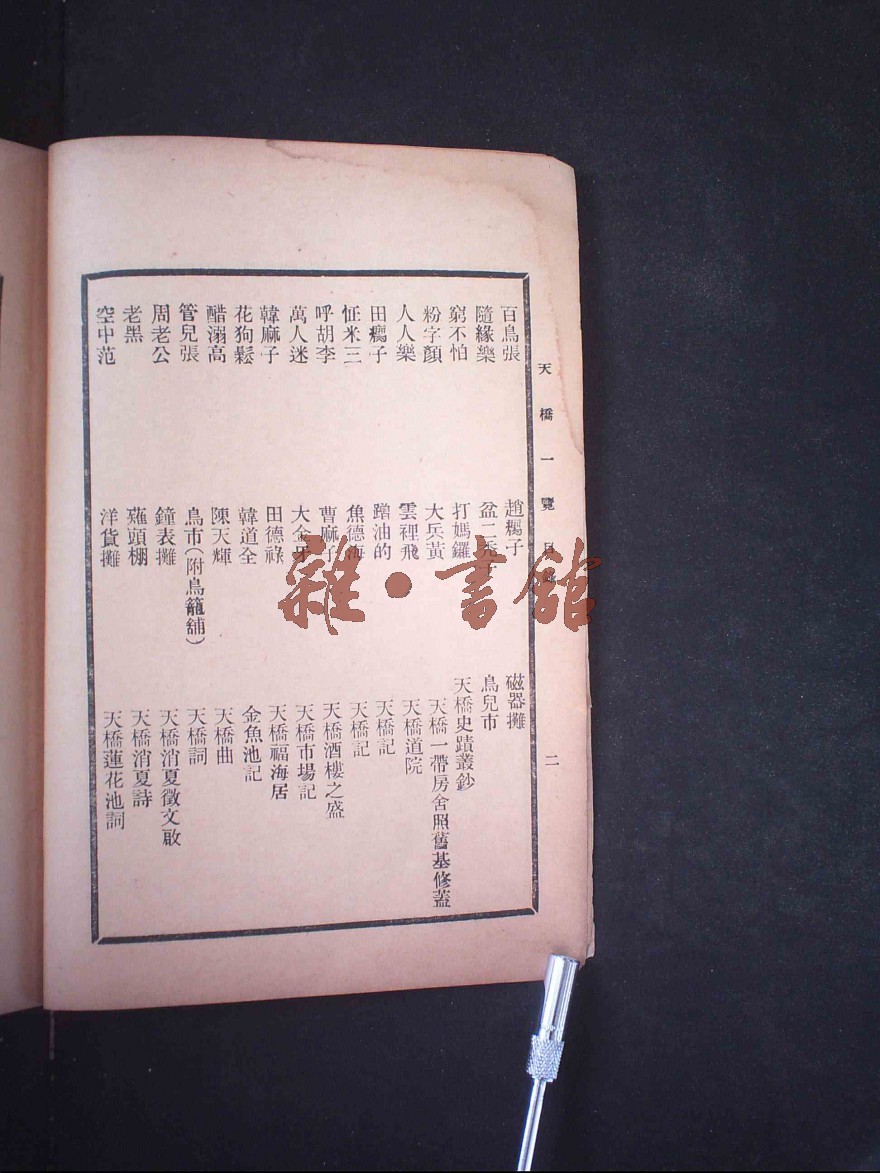 天橋一覽 目錄 二
百鳥張
隨緣樂
窮不怕
粉字顏
人人樂
田瘸子
怔米三
呼胡李
萬人迷
韓麻子
花狗鬆
醋溺高
管兒張
周老公
老黑
空中范
趙瘸子
盆二禿子
打媽鑼
大兵黃
雲裡飛
蹭油的
焦德海
曹麻子
大金牙
田德祿
韓道全
陳天輝
鳥市(附鳥籠舖)
鐘表攤
薙頭棚
洋貨攤
磁器攤
鳥兒市
天橋史蹟叢鈔
天橋一帶房舍照舊基修蓋
天橋道院
天橋記
天橋記
天橋酒樓之盛
天橋市場記
天橋福海居
金魚池記
天橋曲
天橋詞
天橋消夏徵文啟
天橋消夏詩
天橋蓮花池詞
雜·書館